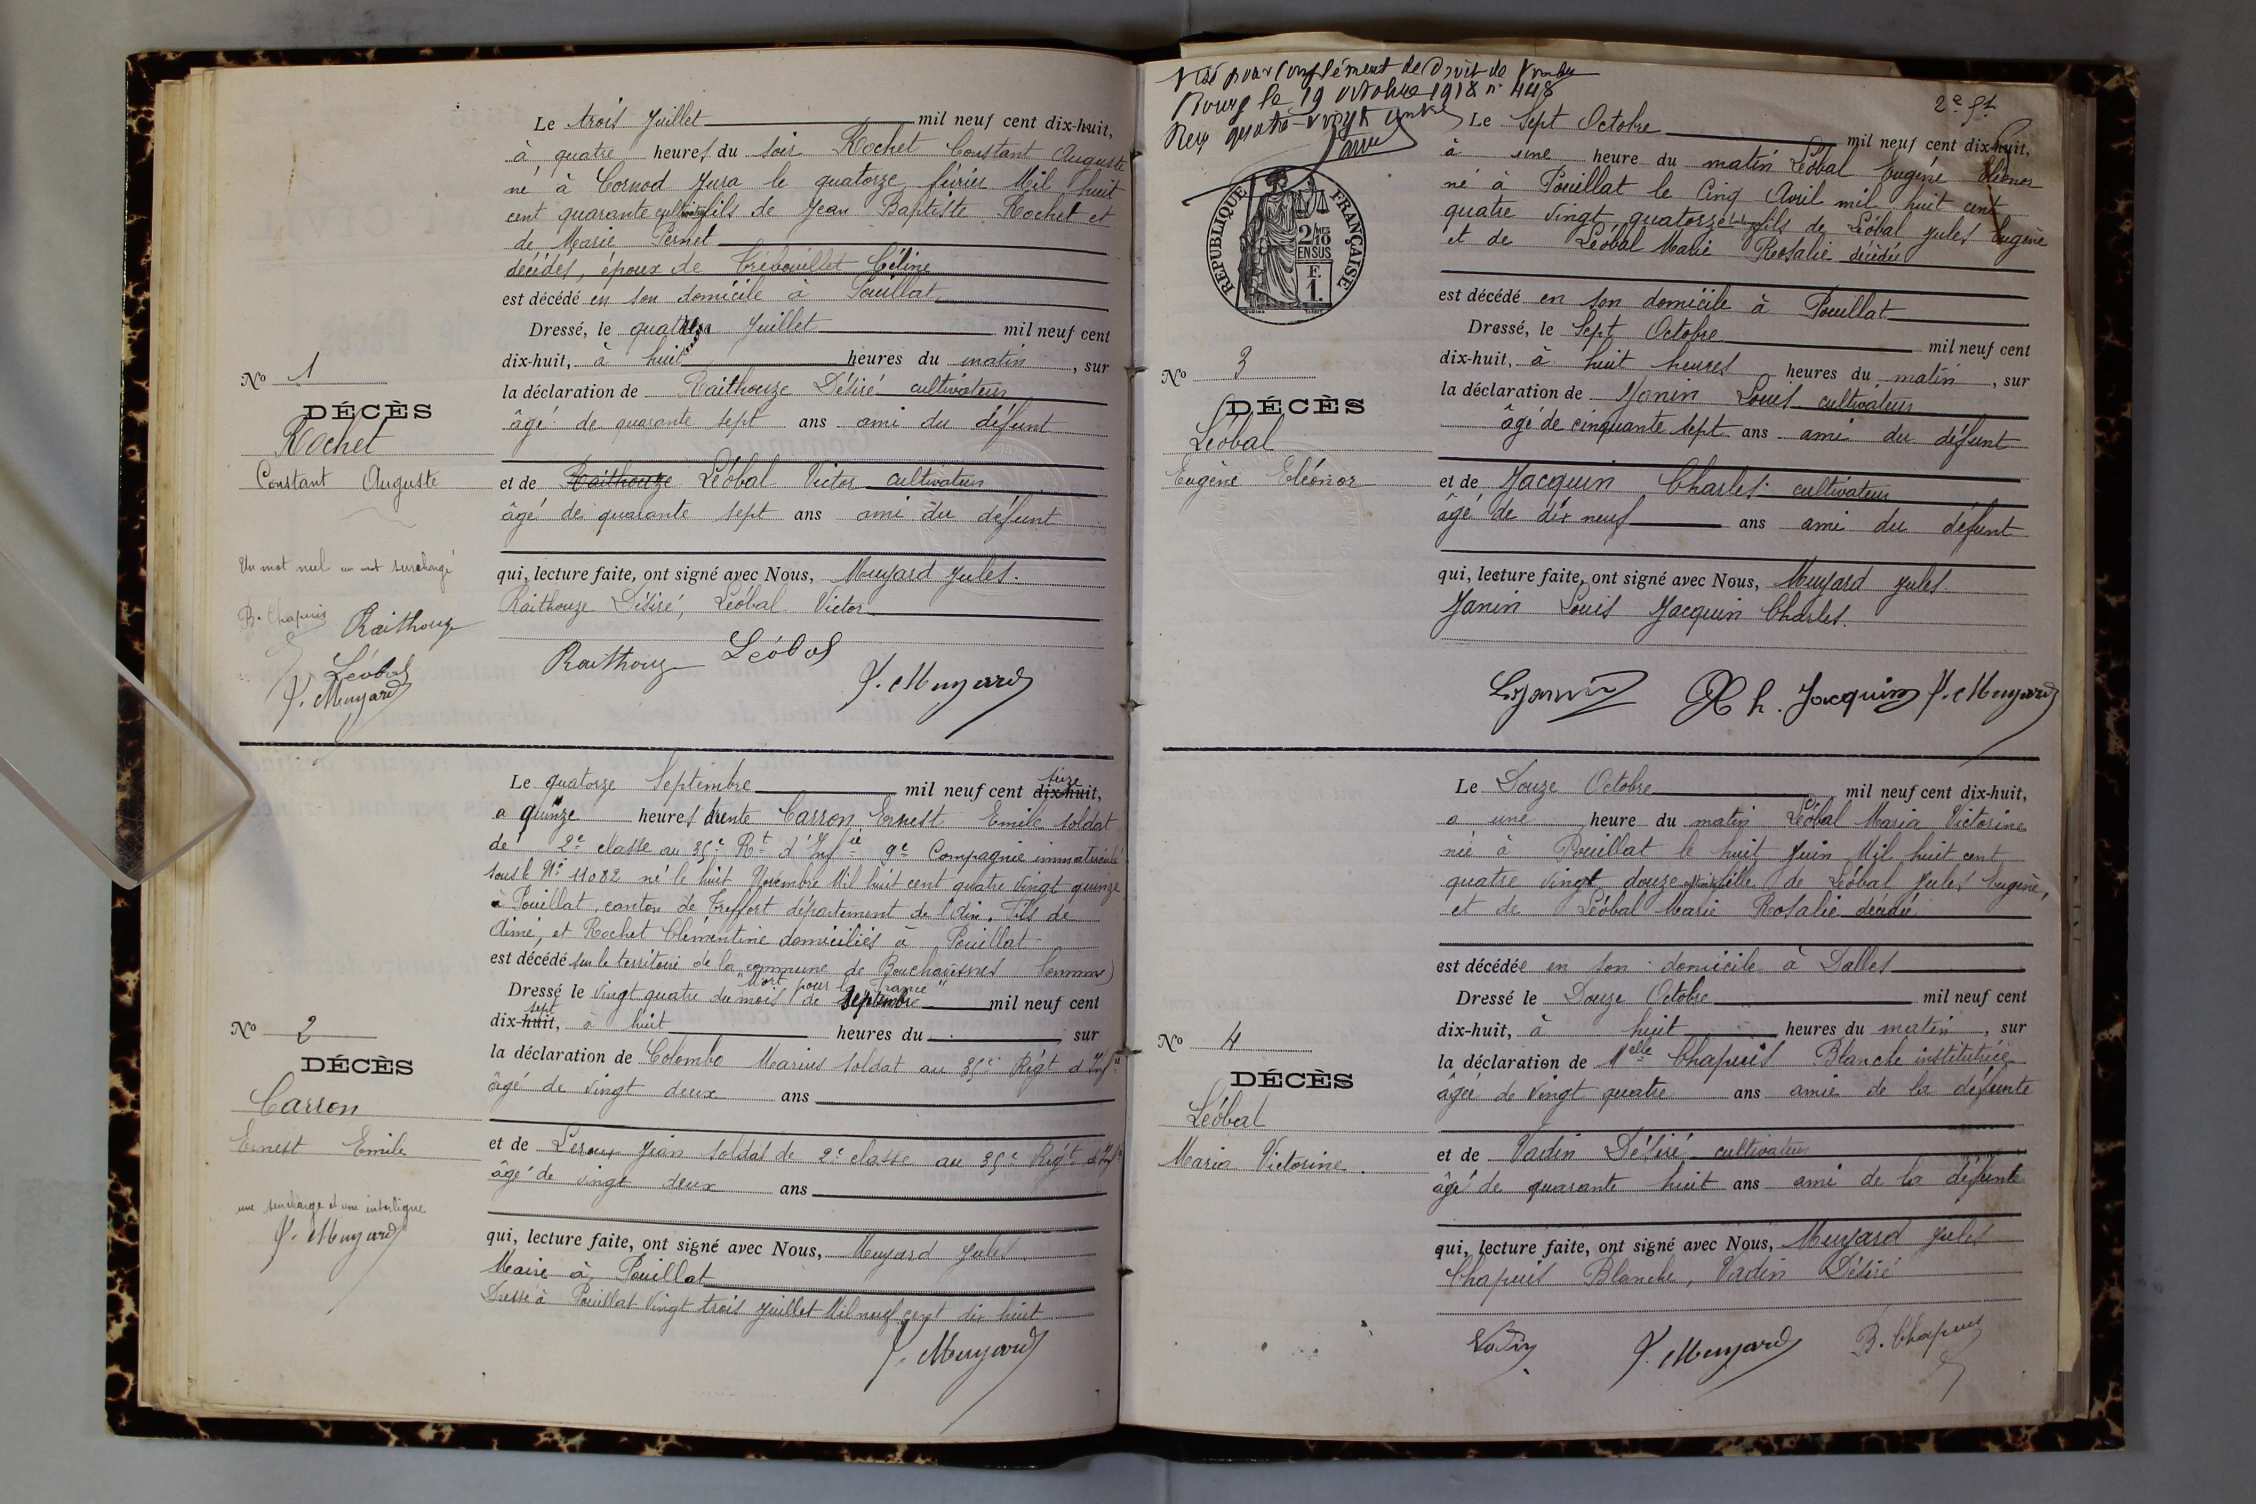 Le trois Juillet mil neuf cent dix-huit,
à quatre heures du soir Rochet Constant Auguste
né à Cornod Jura le quatorze février Mil huit
cent quarante cultivateur fils de Jean Baptiste Rochet et
de Marie Pernet
décédés, époux de Trébouillet Céline
est décédé en son domicile à Pouillat
Dressé, le quatre Juillet mil neuf cent
dix-huit, à huit heures du matin, sur
la déclaration de Raithouze Désiré cultivateur
âgé de quarante sept ans ami du défunt
et de Raithouze Léobal Victor cultivateur
âgé de quarante sept ans ami du défunt
qui, lecture faite, ont signé avec Nous, Muyard Jules.
Raithouze Désiré, Léobal Victor
Raithouze Léobal
J. Muyard
No 1
DÉCÈS
Rochet
Constant Auguste
Un mot nul un mot surchargé
B. Chapuis Raithouze
Léobal
J. Muyard
Le quatorze Septembre mil neuf cent dix-huit, seize
a quinze heures trente Carron Ernest Emile soldat
de 2e classe au 35e Rt d'Infie 9e Compagnie immatriculé
sous le No 11082 né le huit Novembre Mil huit cent quatre vingt quinze
à Pouillat, canton de Treffort département de l'Ain. Fils de
Aimé, et Rochet Clémentine domiciliés à Pouillat
est décédé sur le territoire de la commune de Bouchavesnes (Somme)
"Mort pour la France"
Dressé le vingt quatre du mois de Septembre mil neuf cent
dix-huit, sept à huit heures du sur
la déclaration de Colombo Marius soldat au 35e Régt d'Infie
âgé de vingt deux ans
et de Leroux Jean soldat de 2e classe au 35e Régt d'Infie
âgé de vingt deux ans
qui, lecture faite, ont signé avec Nous, Muyard Jules
Maire à Pouillat
Dressé à Pouillat vingt trois Juillet Mil neuf cent dix huit
J. Muyard
No 2
DÉCÈS
Carron
Ernest Emile
une surcharge et une interligne
J. Muyard
Visé pour Complément de Droit de Timbre
Bourg le 19 octobre 1918 n° 448
Reçu quatre-vingt
2e ft
RÉPUBLIQUE FRANÇAISE
2/10 EN SUS
F. 1.
Le Sept Octobre mil neuf cent dix-huit,
à une heure du matin Léobal Eugène Eléonor
né à Pouillat le Cinq Avril mil huit cent
quatre vingt quatorze fils de Léobal Jules Eugène
et de Léobal Marie Rosalie décédée
est décédé en son domicile à Pouillat
Dressé, le Sept Octobre mil neuf cent
dix-huit, à huit heures heures du matin, sur
la déclaration de Janin Louis cultivateur
âgé de cinquante sept ans ami du défunt
et de Jacquin Charles cultivateur
âgé de dix neuf ans ami du défunt
qui, lecture faite, ont signé avec Nous, Muyard Jules
Janin Louis Jacquin Charles.
L. Janin Ch. Jacquin J. Muyard
No 3
DÉCÈS
Léobal
Eugène Eléonor
Le Douze Octobre mil neuf cent dix-huit,
a une heure du matin Léobal Maria Victorine
née à Pouillat le huit Juin Mil huit cent
quatre vingt douze fille de Léobal Jules Eugène,
et de Léobal Marie Rosalie décédée
est décédée en son domicile à Dalles
Dressé le Douze Octobre mil neuf cent
dix-huit, à huit heures du matin, sur
la déclaration de Melle Chapuis Blanche institutrice
âgée de vingt quatre ans amie de la défunte
et de Vadin Désiré cultivateur
âgé de quarante huit ans ami de la défunte
qui, lecture faite, ont signé avec Nous, Muyard Jules
Chapuis Blanche, Vadin Désiré
Vadin J. Muyard B. Chapuis
No 4
DÉCÈS
Léobal
Maria Victorine.